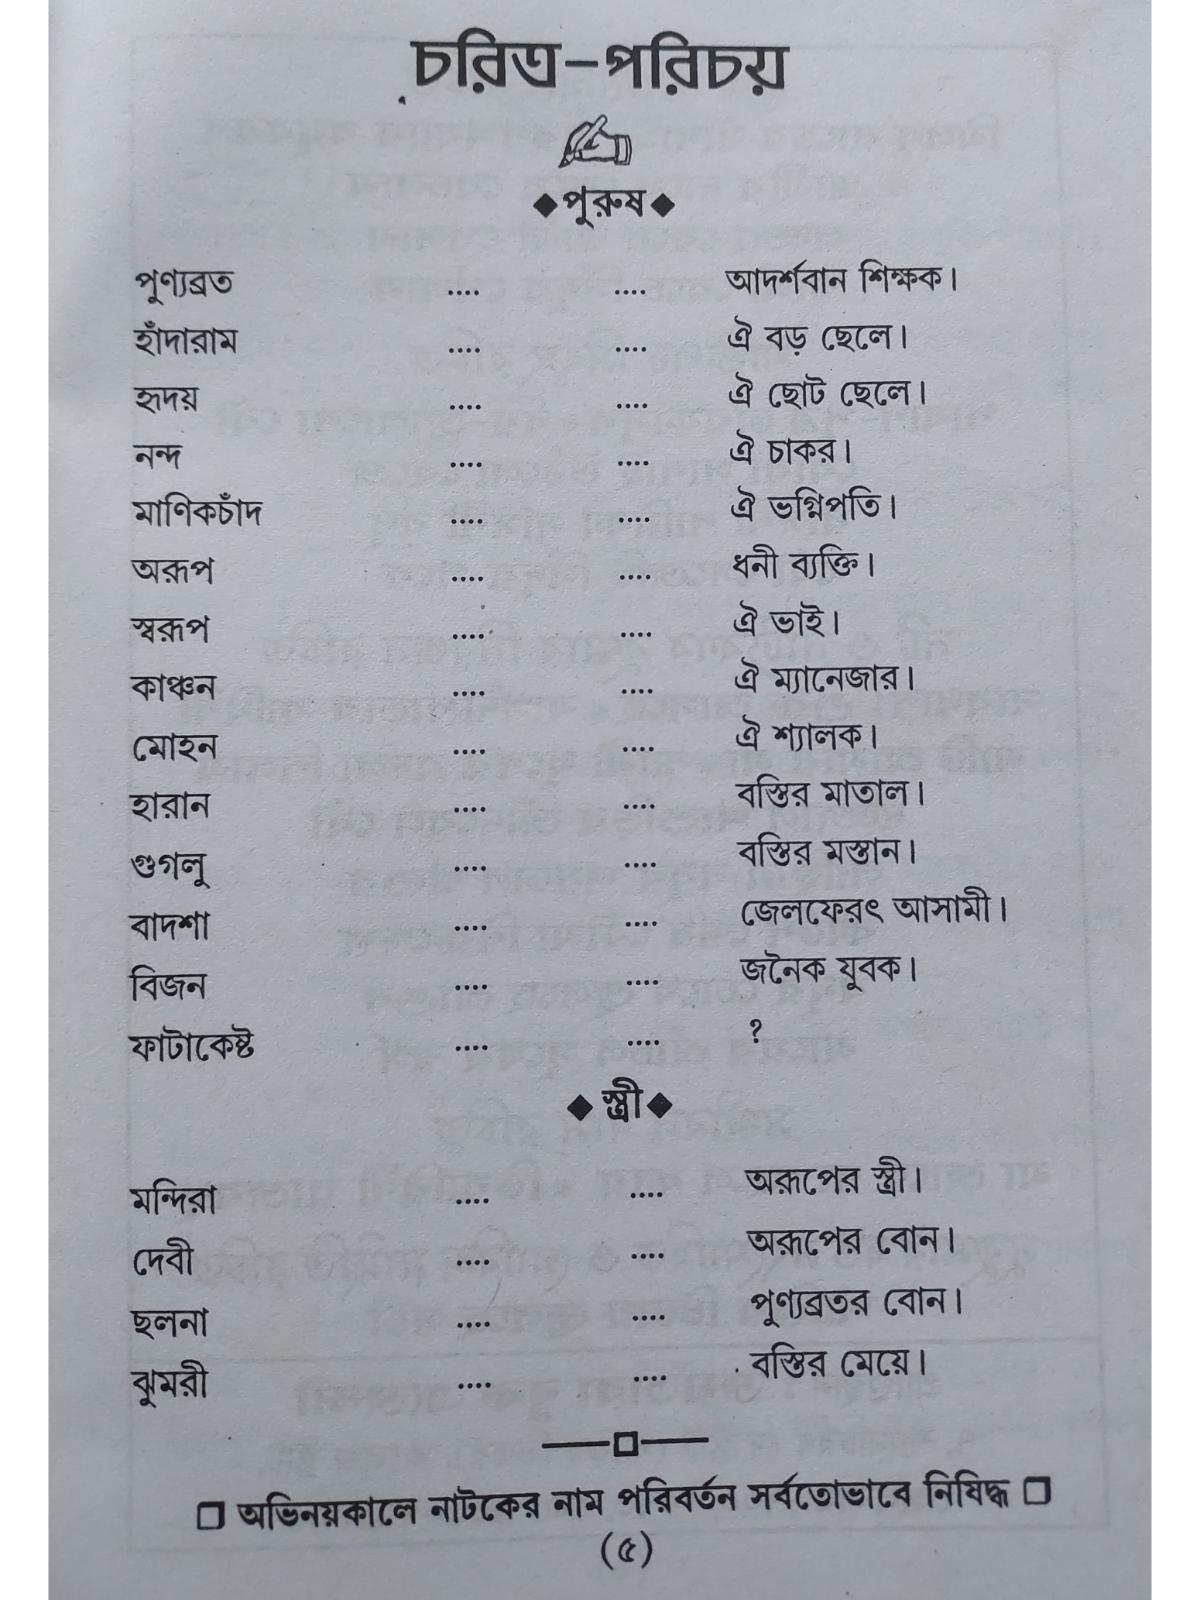 চরিত্র-পরিচয়
◆পুরুষ◆
পুণ্যব্রত .... .... আদর্শবান শিক্ষক।
হাঁদারাম .... .... ঐ বড় ছেলে।
হৃদয় .... .... ঐ ছোট ছেলে।
নন্দ .... .... ঐ চাকর।
মাণিকচাঁদ .... .... ঐ ভগ্নিপতি।
অরূপ .... .... ধনী ব্যক্তি।
স্বরূপ .... .... ঐ ভাই।
কাঞ্চন .... .... ঐ ম্যানেজার।
মোহন .... .... ঐ শ্যালক।
হারান .... .... বস্তির মাতাল।
গুগলু .... .... বস্তির মস্তান।
বাদশা .... .... জেলফেরৎ আসামী।
বিজন .... .... জনৈক যুবক।
ফাটাকেষ্ট .... .... ?
◆ স্ত্রী ◆
মন্দিরা .... .... অরূপের স্ত্রী।
দেবী .... .... অরূপের বোন।
ছলনা .... .... পুণ্যব্রতর বোন।
ঝুমরী .... .... বস্তির মেয়ে।
□ অভিনয়কালে নাটকের নাম পরিবর্তন সর্বতোভাবে নিষিদ্ধ □
(৫)